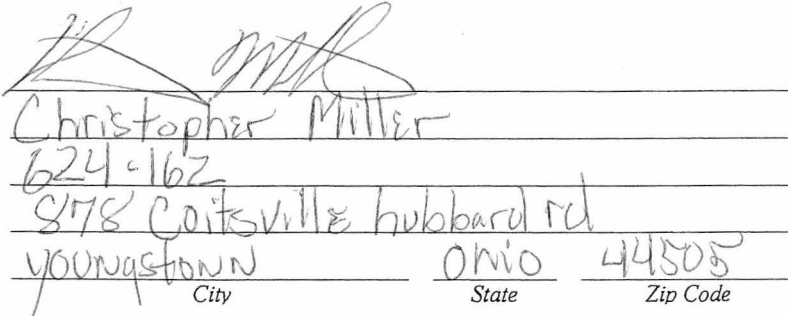 Christopher Miller
624-162
878 Coitsville hubbard rd
Youngstown Ohio 44505
City State Zip Code